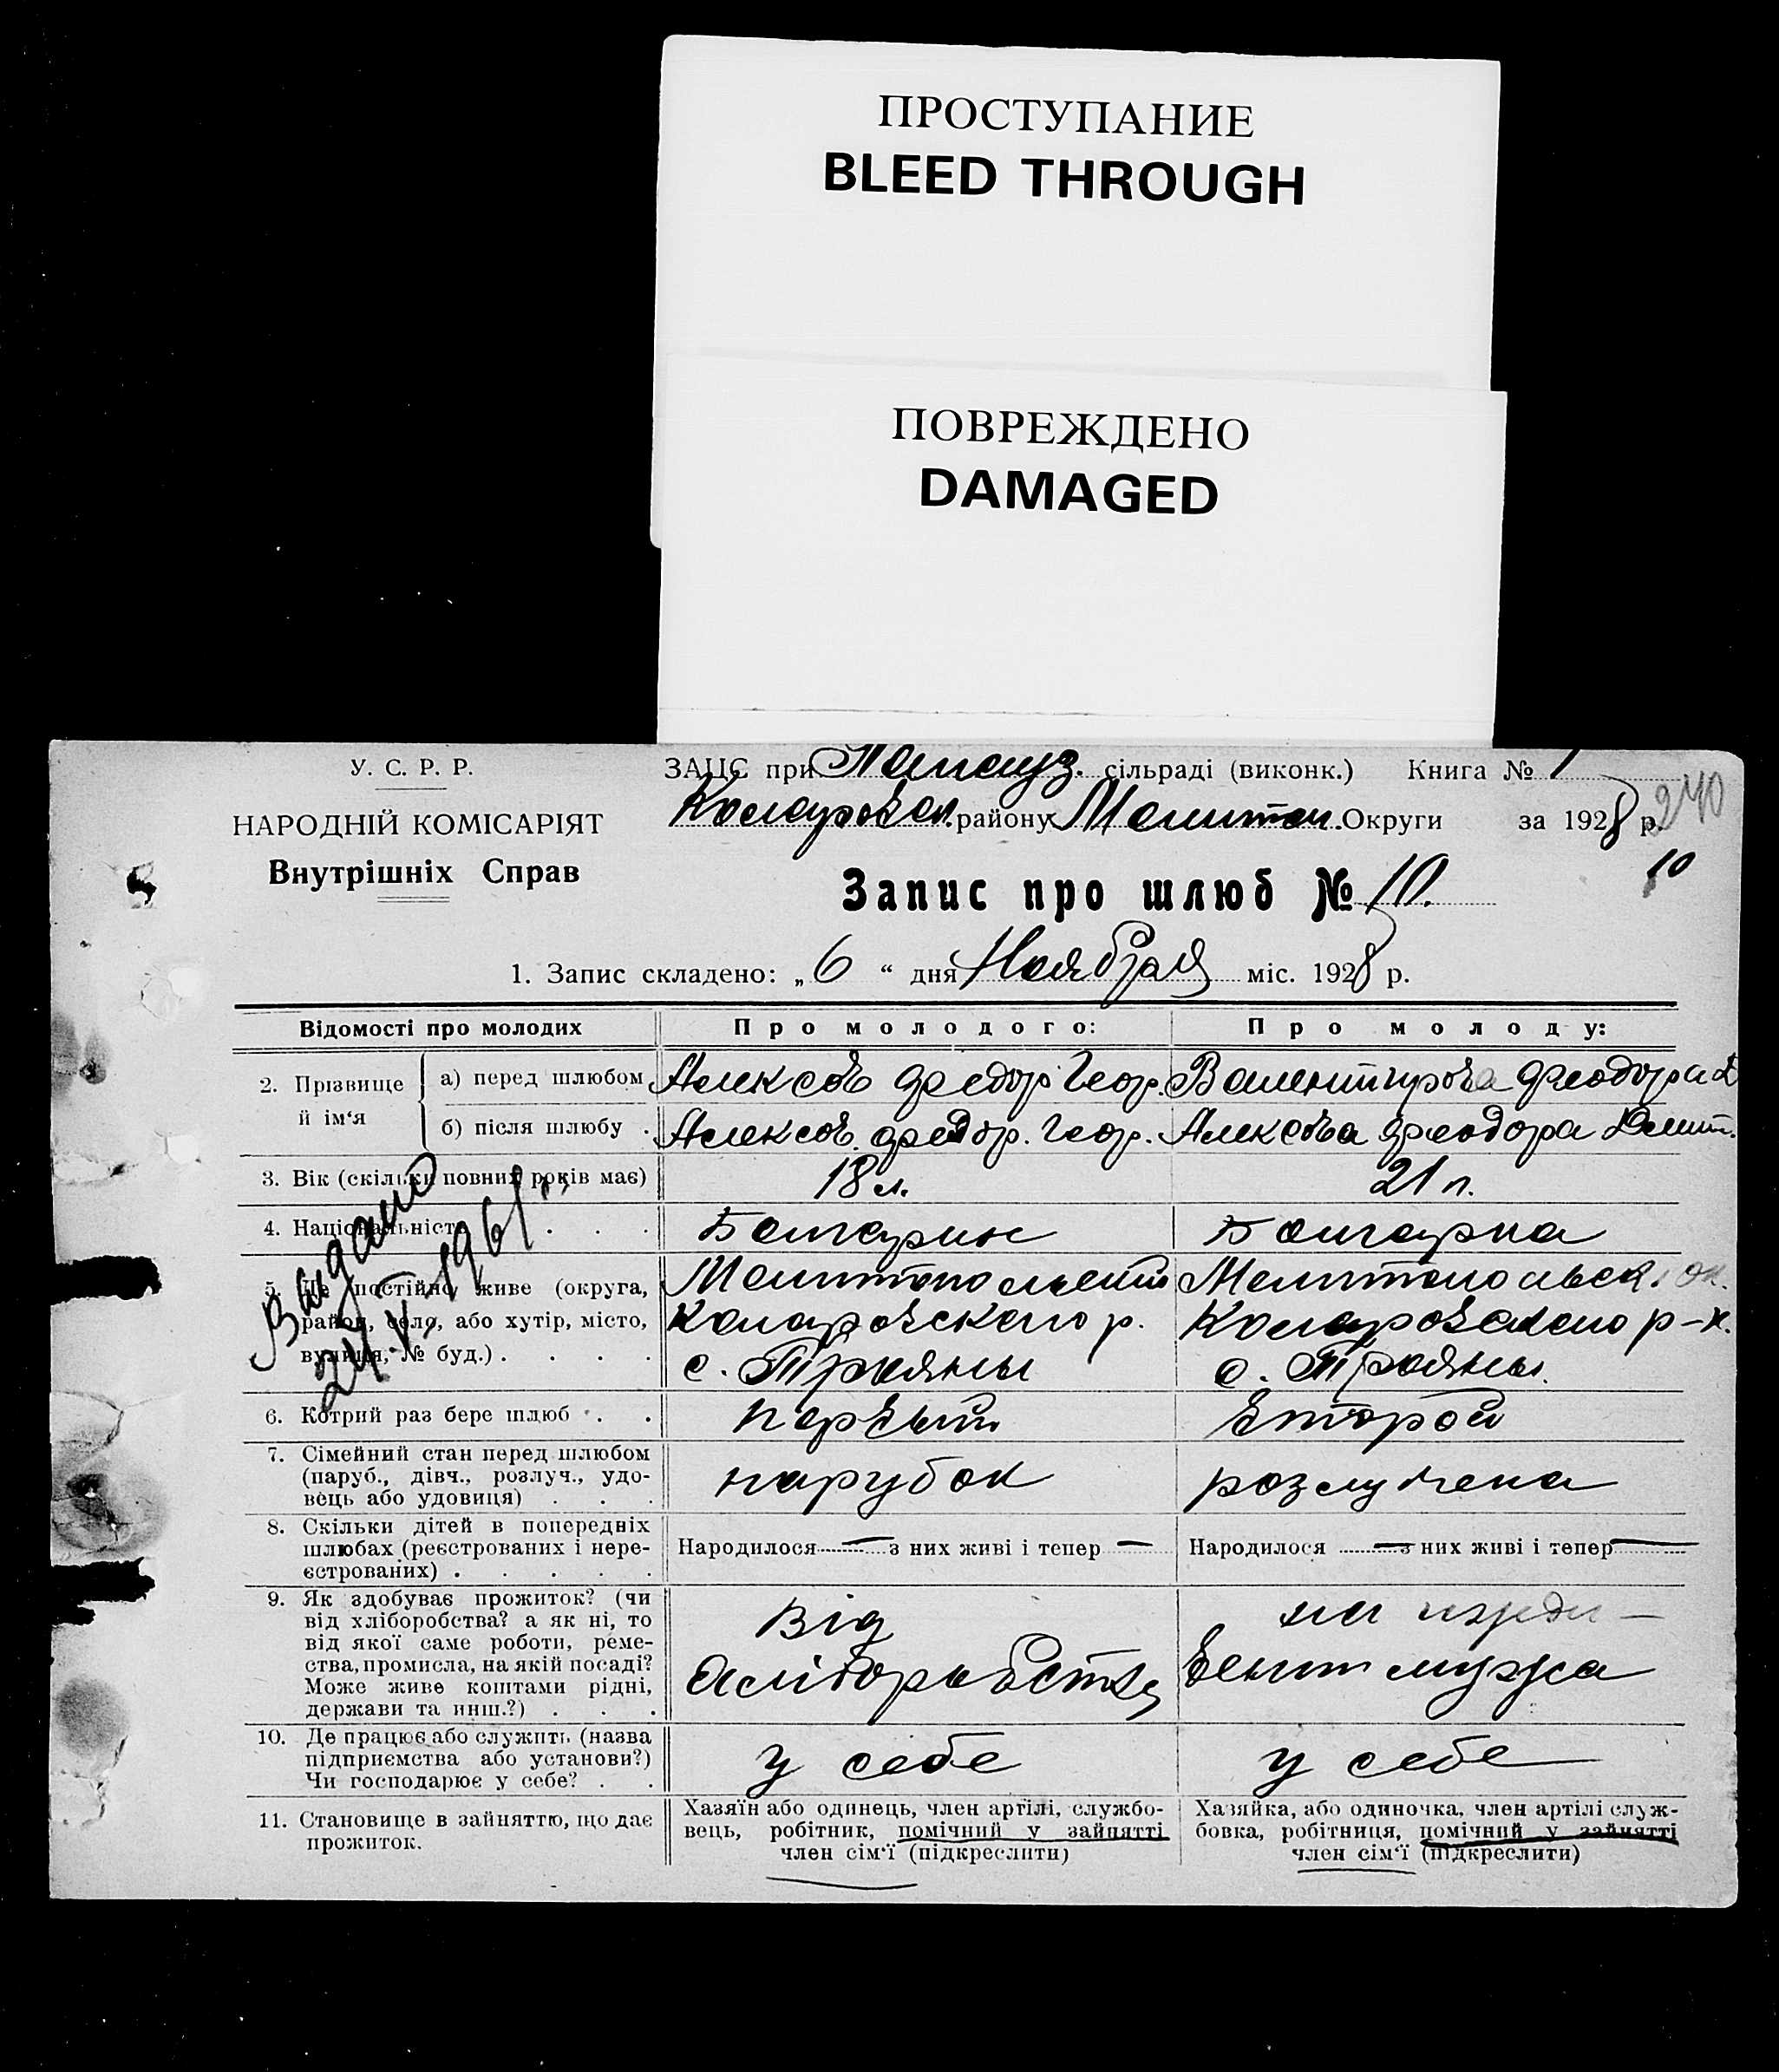 ПРОСТУПАНИЕ
BLEED THROUGH
ПОВРЕЖДЕНО
DAMAGED
У. С. Р. Р.
НАРОДНІЙ КОМІСАРІЯТ
Внутрішніх Справ
ЗАЦС при сільраді (виконк.) Книга № 1
района Округи за 1928 р. 240
10
Запис про шлюб № 10.
1. Запис складено: „ 6 “ дня Ноября міс. 1928 р.
Відомості про молодих
Про молодого:
Про молоду:
2. Прізвище й ім‘я
а) перед шлюбом
Алексов Федор Геор.
Феодора Д
б) після шлюбу .
Алексов Федор. Геор.
Алексова Феодора Дмит.
3. Вік (скільки повних років має)
18 л.
21 л.
4. Національність . . .
Болгарин
Болгарка
5. Де постійно живе (округа,
район, село, або хутір, місто,
вулиця, № буд.) . . . .
Коларовского р.
с. Трояны
Мелитопольск. ок.
Коларовского р-н.
с. Трояны.
Видано
24/V. 1961
6. Котрий раз бере шлюб . .
первый
второй
7. Сімейний стан перед шлюбом
(паруб., дівч., розлуч., удо-
вець або удовиця) . . .
парубок
розлучена
8. Скільки дітей в попередніх
шлюбах (реєстрованих і нере-
єстрованих) . . . . .
Народилося — з них живі і тепер —
Народилося — з них живі і тепер —
9. Як здобуває прожиток? (чи
від хліборобства? а як ні, то
від якої саме роботи, реме-
ства, промисла, на якій посаді?
Може живе коштами рідні,
держави та инш.?) . . .
Від
хліборобства
на ижди-
вении мужа
10. Де працює або служить (назва
підприємства або установи?)
Чи господарює у себе? . .
у себе
у себе
11. Становище в зайняттю, що дає
прожиток.
Хазяїн або одинець, член артілі, службо-
вець, робітник, помічний у зайнятті
член сім‘ї (підкреслити)
Хазяйка, або одиночка, член артілі служ-
бовка, робітниця, помічний у зайнятті
член сім‘ї (підкреслити)